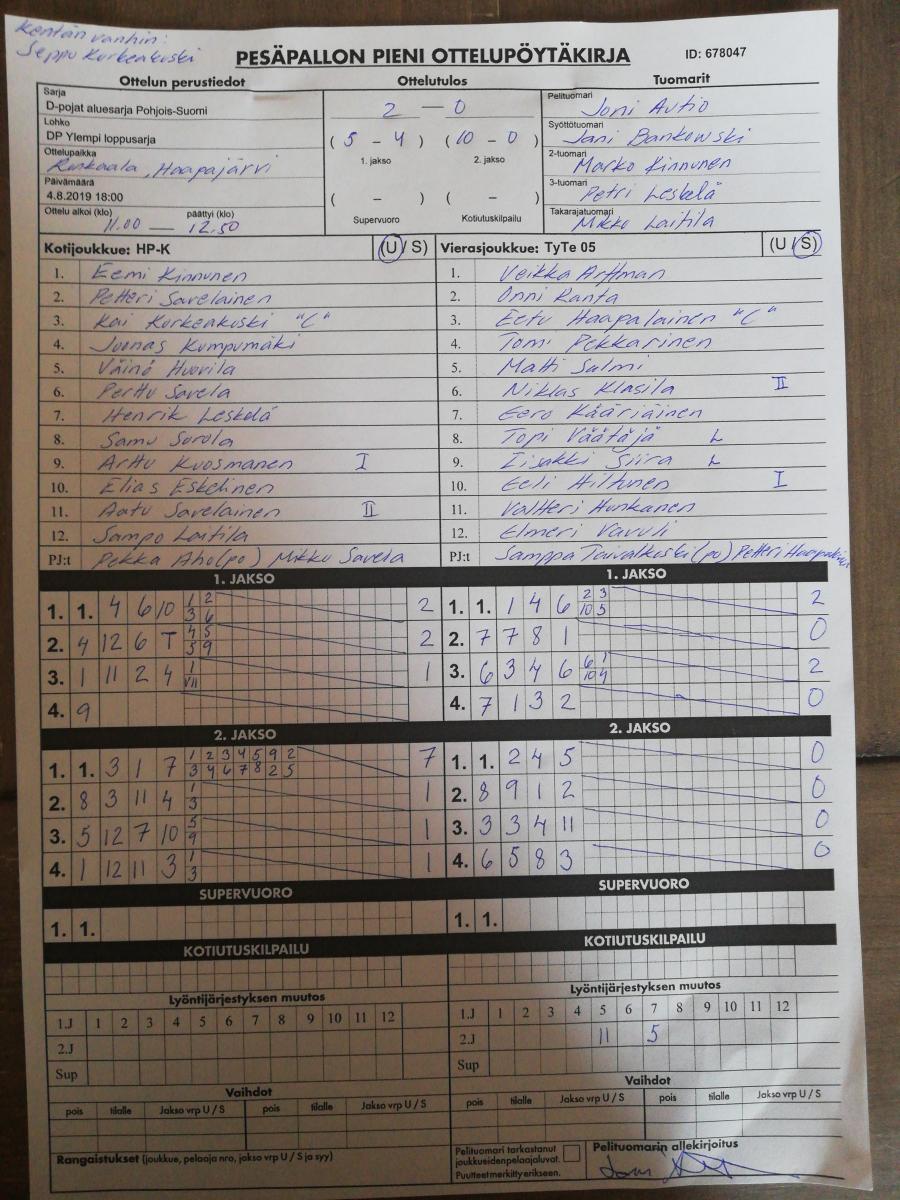 Kentän vanhin:
Seppo Korkeakoski
PESÄPALLON PIENI OTTELUPÖYTÄKIRJA ID: 678047
Ottelun perustiedot Ottelutulos Tuomarit
Sarja
D-pojat aluesarja Pohjois-Suomi
Lohko
DP Ylempi loppusarja
Ottelupaikka
Ronkaala, Haapajärvi
Päivämäärä
4.8.2019 18:00
Ottelu alkoi (klo) päättyi (klo)
11.00 — 12.50
2 — 0
( 5 - 4 ) ( 10 - 0 )
1. jakso 2. jakso
( - ) ( - )
Supervuoro Kotiutuskilpailu
Pelituomari Joni Autio
Syöttötuomari Jani Bankowski
2-tuomari Marko Kinnunen
3-tuomari Petri Leskelä
Takarajatuomari Mikko Laitila
Kotijoukkue: HP-K (U / S)
1. Eemi Kinnunen
2. Petteri Savelainen
3. Kai Korkeakoski "C"
4. Joonas Kumpumäki
5. Väinö Huovila
6. Perttu Savela
7. Henrik Leskelä
8. Samu Sorola
9. Arttu Kuosmanen I
10. Elias Eskelinen
11. Aatu Savelainen II
12. Sampo Laitila
PJ:t Pekka Aho (po) Mikko Savela
Vierasjoukkue: TyTe 05 (U / S)
1. Veikka Arffman
2. Onni Ranta
3. Eetu Haapalainen "C"
4. Tomi Pekkarinen
5. Matti Salmi
6. Niklas Klasila II
7. Eero Kääriäinen
8. Topi Väätäjä L
9. Iisakki Siira L
10. Eeli Hiltunen I
11. Valtteri Hunkanen
12. Elmeri Vavuli
PJ:t Samppa Taivalkoski (po) Petteri Haapalainen
1. JAKSO
1. 1. 4 6 10 1 2 2
3 6
2. 4 12 6 T 4 5 2
5 9
3. 1 11 2 4 1 1
VII
4. 9
2. JAKSO
1. 1. 3 1 7 1 2 3 4 5 9 2 7
3 4 6 7 8 2 5
2. 8 3 11 4 1 1
3
3. 5 12 7 10 5 1
9
4. 1 12 11 3 1 1
3
SUPERVUORO
1. 1.
KOTIUTUSKILPAILU
Lyöntijärjestyksen muutos
1.J 1 2 3 4 5 6 7 8 9 10 11 12
2.J
Sup
Vaihdot
pois tilalle Jakso vrp U / S pois tilalle Jakso vrp U / S
Rangaistukset (joukkue, pelaaja nro, jakso vrp U / S ja syy)
1. JAKSO
1. 1. 1 4 6 2 3 2
10 5
2. 7 7 8 1 0
3. 6 3 4 6 6 1 2
10 4
4. 7 1 3 2 0
2. JAKSO
1. 1. 2 4 5 0
2. 8 9 1 2 0
3. 3 3 4 11 0
4. 6 5 8 3 0
SUPERVUORO
1. 1.
KOTIUTUSKILPAILU
Lyöntijärjestyksen muutos
1.J 1 2 3 4 5 6 7 8 9 10 11 12
2.J 11 5
Sup
Vaihdot
pois tilalle Jakso vrp U / S pois tilalle Jakso vrp U / S
Pelituomari tarkastanut
joukkueiden pelaajaluvat.
Puutteet merkitty erikseen.
Pelituomarin allekirjoitus